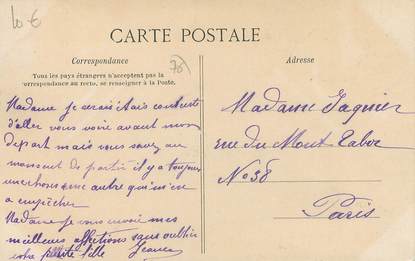 10 €
CARTE POSTALE
78
Correspondance
Adresse
Tous les pays étrangers n'acceptent pas la
correspondance au recto, se renseigner à la Poste.
Madame je serais
d'aller vous voire avant mon
depart mais vous savez au
moment de partir il y a toujour
une chose autre qui m'est
a empêcher
Madame je vous envoie mes
meilleures affections sans oublier
votre petite fille Jeanne
Madame Jagnier
rue du Mont Tabor
No 38
Paris